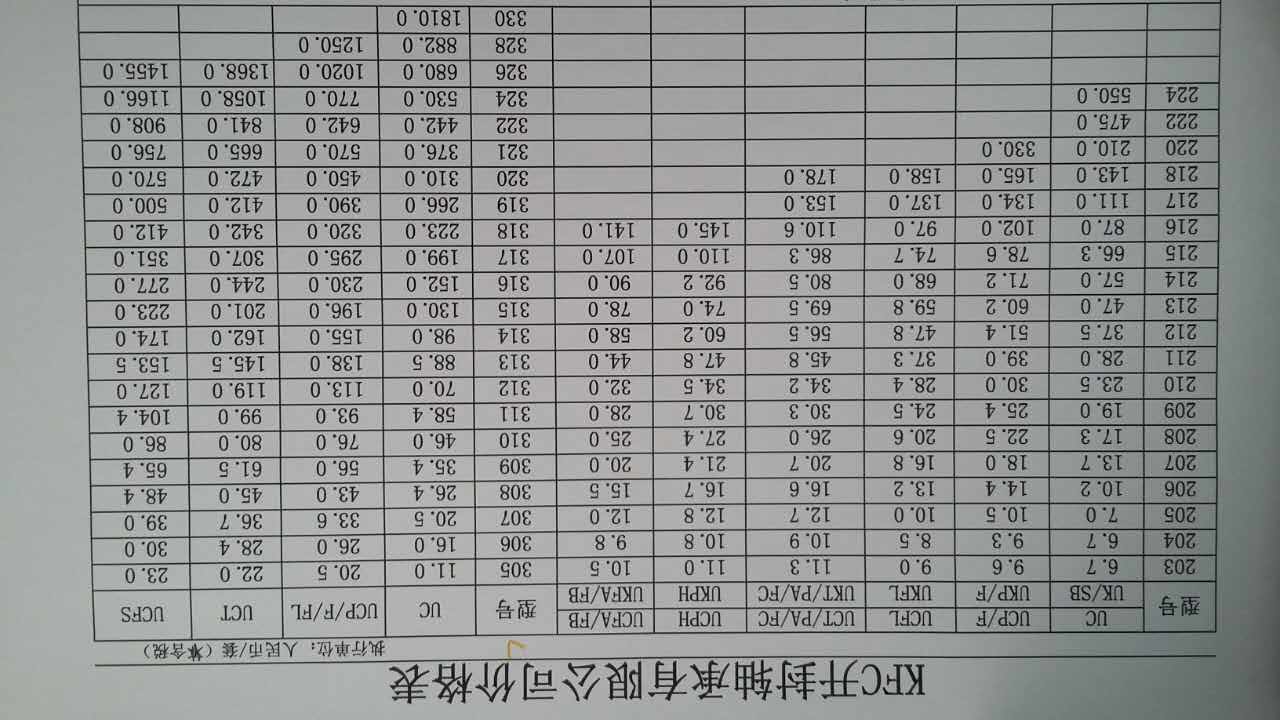 KFC开封轴承有限公司价格表
执行单位：人民币/套（含税）
型号 UC UCP/F UCFL UCT/PA/FC UCPH UCFA/FB 型号 UC UCP/F/FL UCT UCFS
UK/SB UKP/F UKFL UKT/PA/FC UKPH UKFA/FB
203 6.7 9.6 9.0 11.3 11.0 10.5 305 11.0 20.5 22.0 23.0
204 6.7 9.3 8.5 10.9 10.8 9.8 306 16.0 26.0 28.4 30.0
205 7.0 10.5 10.0 12.7 12.8 12.0 307 20.5 33.6 36.7 39.0
206 10.2 14.4 13.2 16.6 16.7 15.5 308 26.4 43.0 45.0 48.4
207 13.7 18.0 16.8 20.7 21.4 20.0 309 35.4 56.0 61.5 65.4
208 17.3 22.5 20.6 26.0 27.4 25.0 310 46.0 76.0 80.0 86.0
209 19.0 25.4 24.5 30.3 30.7 28.0 311 58.4 93.0 99.0 104.4
210 23.5 30.0 28.4 34.2 34.5 32.0 312 70.0 113.0 119.0 127.0
211 28.0 39.0 37.3 45.8 47.8 44.0 313 88.5 138.0 145.5 153.5
212 37.5 51.4 47.8 56.5 60.2 58.0 314 98.0 155.0 162.0 174.0
213 47.0 60.2 59.8 69.5 74.0 78.0 315 130.0 196.0 201.0 223.0
214 57.0 71.2 68.0 80.5 92.2 90.0 316 152.0 230.0 244.0 277.0
215 66.3 78.6 74.7 86.3 110.0 107.0 317 199.0 295.0 307.0 351.0
216 87.0 102.0 97.0 110.6 145.0 141.0 318 223.0 320.0 342.0 412.0
217 111.0 134.0 137.0 153.0 319 266.0 390.0 412.0 500.0
218 143.0 165.0 158.0 178.0 320 310.0 450.0 472.0 570.0
220 210.0 330.0 321 376.0 570.0 665.0 756.0
222 475.0 322 442.0 642.0 841.0 908.0
224 550.0 324 530.0 770.0 1058.0 1166.0
326 680.0 1020.0 1368.0 1455.0
328 882.0 1250.0
330 1810.0